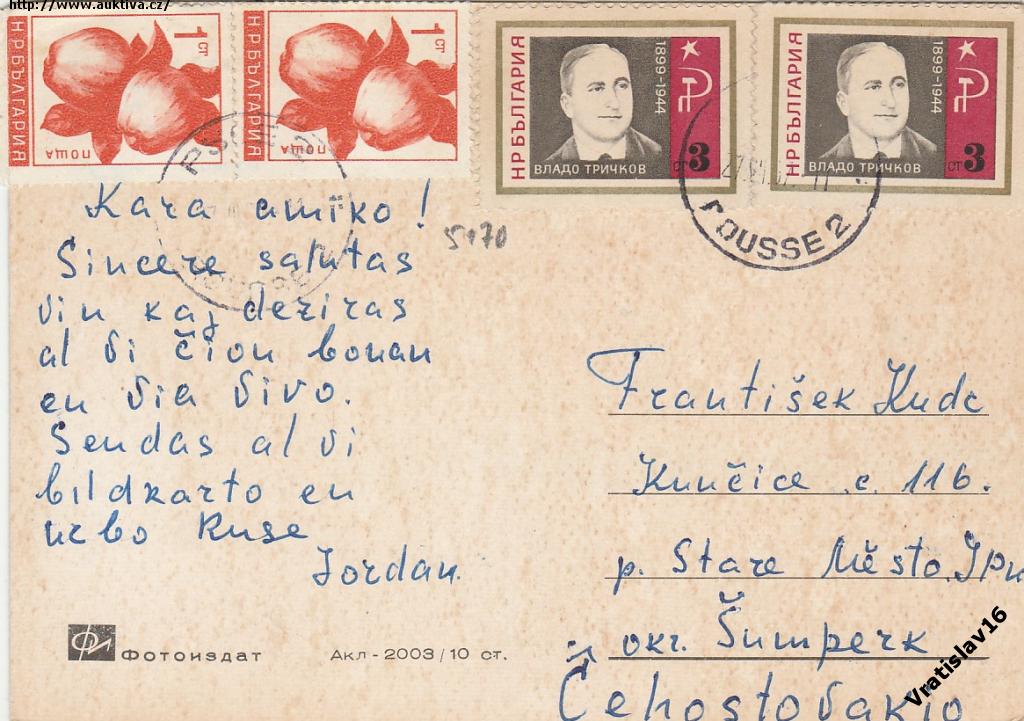 http://www.auktiva.cz/
НРБЪЛГАРИЯ
1 СТ
ПОЩА
НРБЪЛГАРИЯ
1 СТ
ПОЩА
НРБЪЛГАРИЯ
1899-1944
ВЛАДО ТРИЧКОВ
СТ 3
НРБЪЛГАРИЯ
1899-1944
ВЛАДО ТРИЧКОВ
СТ 3
ROUSSE 2
Kara amiko!
5170
Sincere salutas
vin kaj deziras
al vi ĉion bonan
en via vivo.
Sendas al vi
bildkarto en
urbo Ruse
Jordan.
František Kudc
Kunčice č. 116.
p. Stare Město
okr. Šumperk
Ĉehoslovakio
Фотоиздат
Акл - 2003/10 ст.
Vratislav16